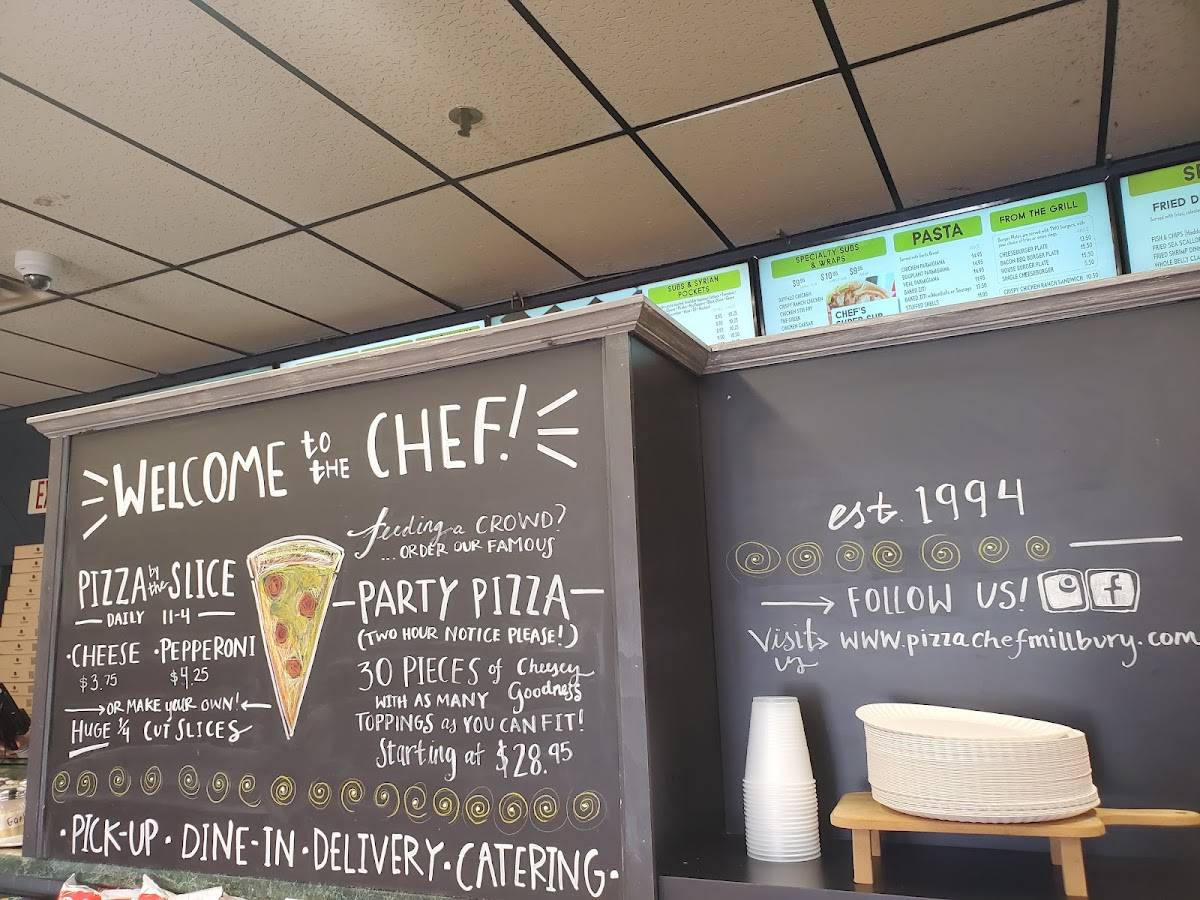 WELCOME to the CHEF!
PIZZA by the SLICE
DAILY 11-4
·CHEESE ·PEPPERONI
$3.75 $4.25
OR MAKE your OWN!
HUGE ¼ CUT SLICES
feeding a CROWD?
... ORDER OUR FAMOUS
PARTY PIZZA
(TWO HOUR NOTICE PLEASE!)
30 PIECES of Cheesey
WITH AS MANY Goodness
TOPPINGS as YOU CAN FIT!
Starting at $28.95
·PICK-UP· DINE-IN·DELIVERY·CATERING·
est. 1994
FOLLOW US! f
Visit us www.pizzachefmillbury.com
SUBS & SYRIAN
POCKETS
SPECIALTY SUBS
& WRAPS
BUFFALO CHICKEN
CRISPY RANCH CHICKEN
CHICKEN STIR FRY
THE GREEK
CHICKEN CAESAR
CHEF'S
SUPER SUB
PASTA
CHICKEN PARMIGIANA
EGGPLANT PARMIGIANA
VEAL PARMIGIANA
BAKED ZITI
BAKED ZITI w/Meatballs or Sausage
STUFFED SHELLS
FROM THE GRILL
CHEESEBURGER PLATE
BACON BBQ BURGER PLATE
HOUSE BURGER PLATE
SINGLE CHEESEBURGER
CRISPY CHICKEN RANCH SANDWICH 10.50
FRIED D
FISH & CHIPS
FRIED SEA SCALL
FRIED SHRIMP DIN
WHOLE BELLY CLA